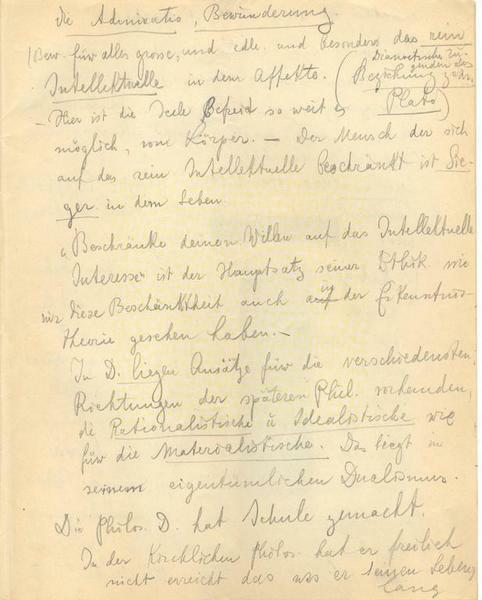 die Admiratio, Bewunderung.
(Bew. für alles grosse, und edle und besonders das rein
Intellektuelle in dem Affekte. (Dianoetische Tugenden
Beziehung zu
Plato)
– Hier ist die Seele befreit so weit es
möglich, vom Körper. – Der Mensch der sich
auf das rein Intellektuelle beschränkt ist Sie-
ger in dem Leben.
„Beschränke deinen Willen auf das Intellektuelle
Interesse" ist der Hauptsatz seiner Ethik wie
wir diese Beschänktheit auch in der Erkenntnis-
theorie gesehen haben. –
In D. liegen Ansätze für die verschiedensten
Richtungen der späteren Phil. vorhanden,
die Rationalistische u Idealistische wie
für die Materialistische. Das liegt in
seinem eigentümlichen Dualismus.
Die Philos. D. hat Schule gemacht.
In der Kirchlichen Philos. hat er freilich
nicht erreicht das was er seinen Lebens
lang